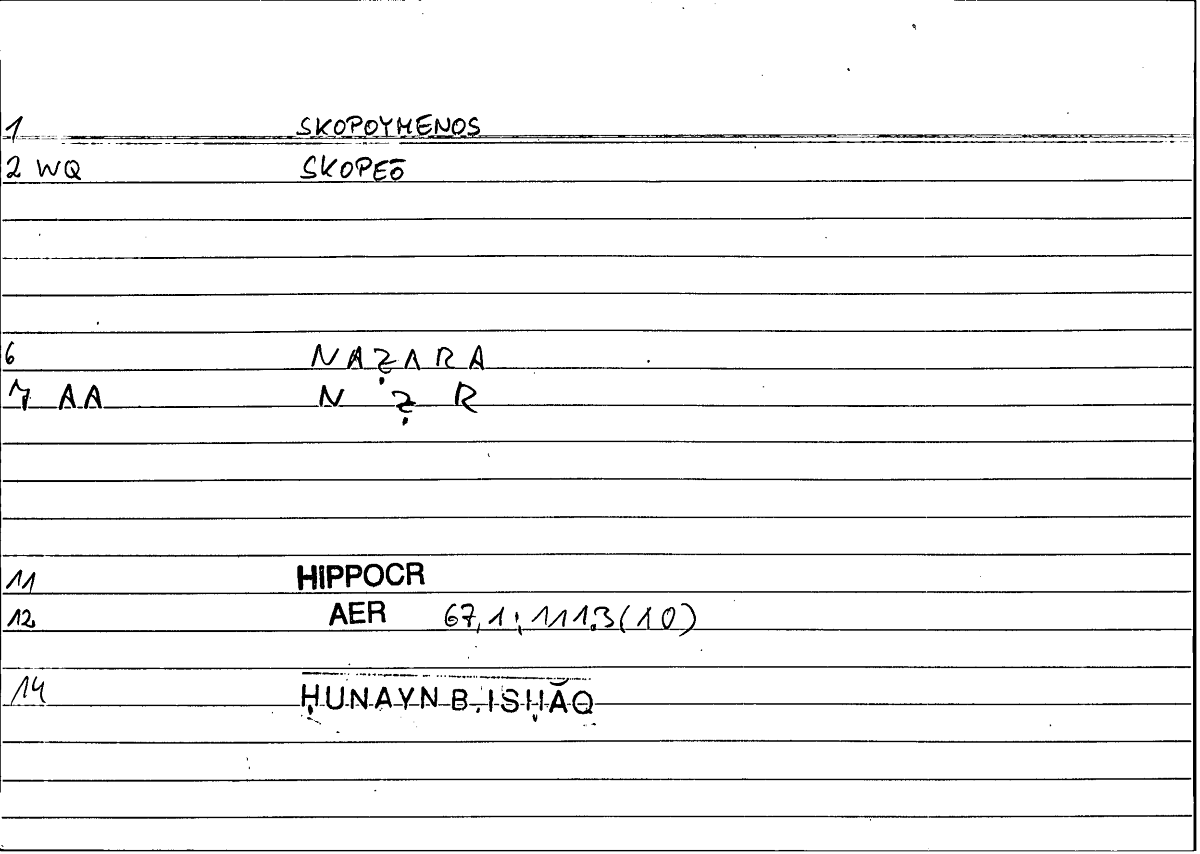 1 SKOPOYMENOS
2 WQ SKOPEŌ
6 NAẒARA
7 AA N Ẓ R
11 HIPPOCR
12 AER 67,1; 111,3(10)
14 ḤUNAYN B. ISḤĀQ